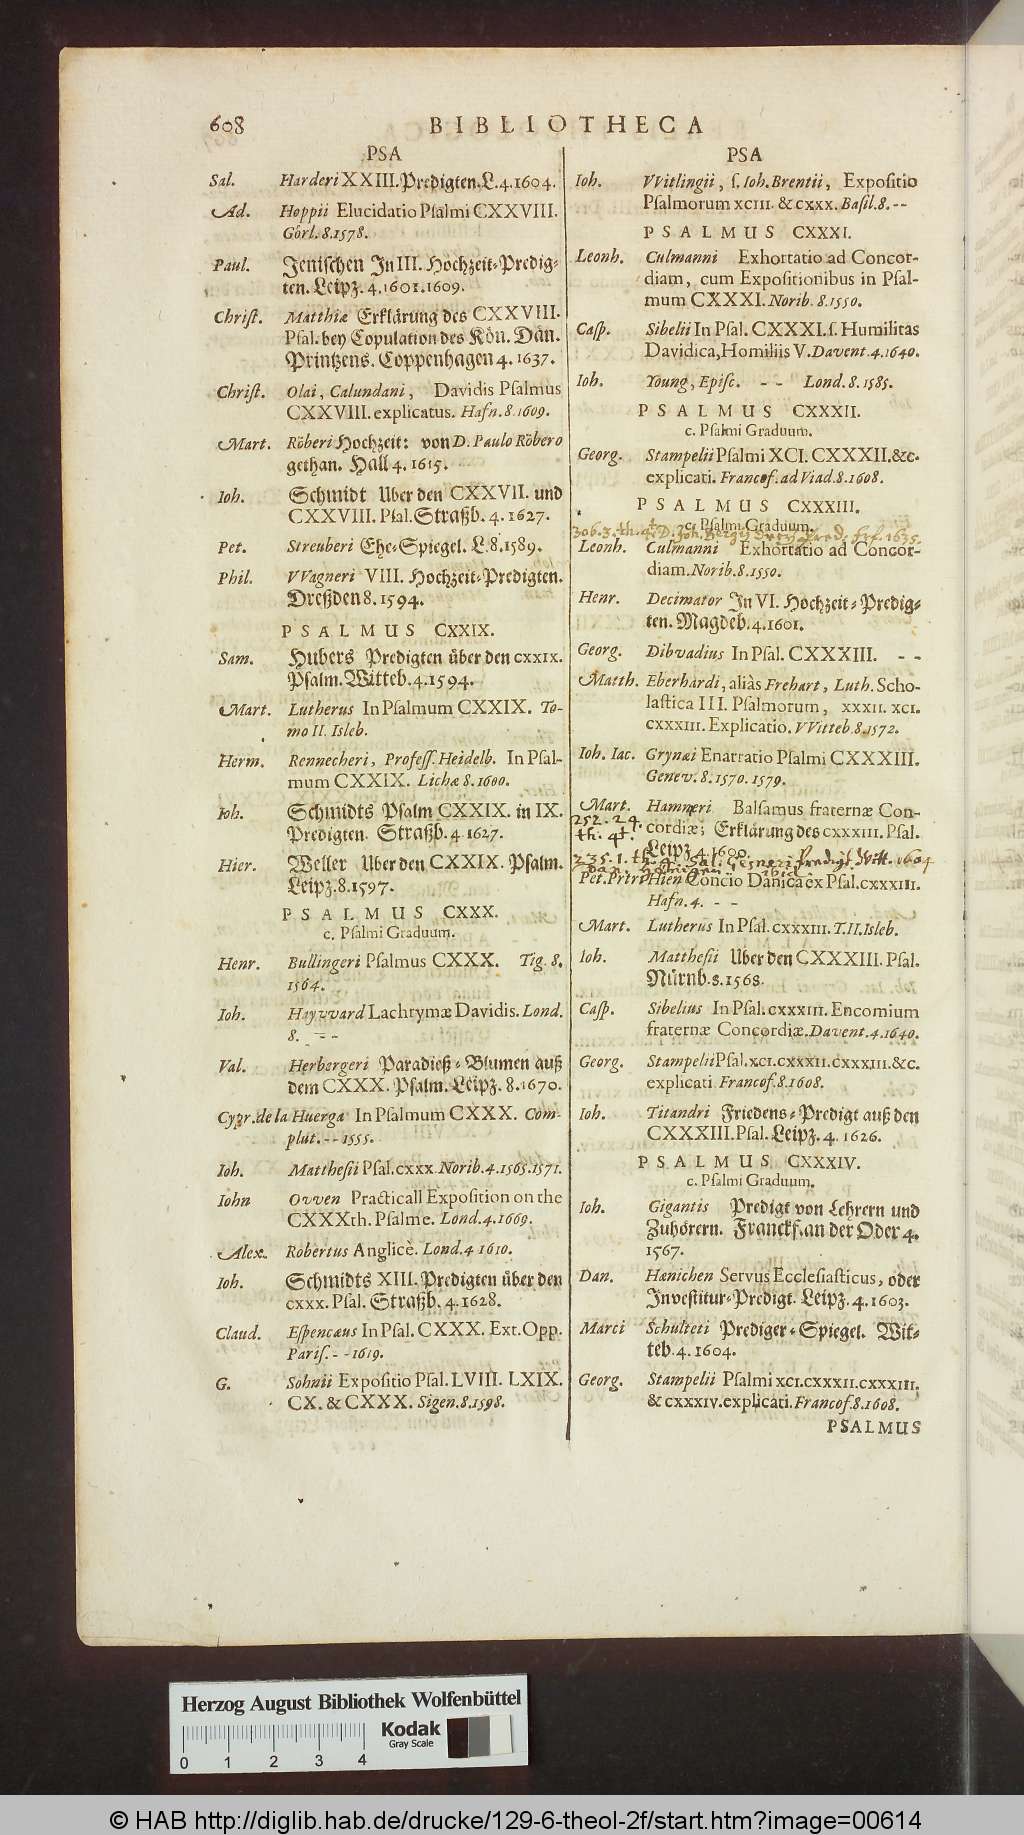 608 BIBLIOTHECA
PSA
Sal. Harderi XXIII. Predigten. L. 4. 1604.
Ad. Hoppii Elucidatio Psalmi CXXVIII.
Görl. 8. 1578.
Paul. Jenischen In III. Hochzeit-Predig-
ten. Leipz. 4. 1601. 1609.
Christ. Matthiæ Erklärung des CXXVIII.
Psal. bey Copulation des Kön. Dän.
Printzens. Coppenhagen 4. 1637.
Christ. Olai, Calundani, Davidis Psalmus
CXXVIII. explicatus. Hafn. 8. 1609.
Mart. Röberi Hochzeit: von D. Paulo Röbero
gethan. Hall 4. 1615.
Ioh. Schmidt Uber den CXXVII. und
CXXVIII. Psal. Straßb. 4. 1627.
Pet. Streuberi Ehe-Spiegel. L. 8. 1589.
Phil. VVagneri VIII. Hochzeit-Predigten.
Dreßden 8. 1594.
PSALMUS CXXIX.
Sam. Hubers Predigten über den CXXIX.
Psalm. Witteb. 4. 1594.
Mart. Lutherus In Psalmum CXXIX. To-
mo II. Isleb.
Herm. Rennecheri, Profess. Heidelb. In Psal-
mum CXXIX. Lichæ 8. 1600.
Ioh. Schmidts Psalm CXXIX. in IX.
Predigten. Straßb. 4 1627.
Hier. Weller Uber den CXXIX. Psalm.
Leipz. 8. 1597.
PSALMUS CXXX.
c. Psalmi Graduum.
Henr. Bullingeri Psalmus CXXX. Tig. 8.
1564.
Ioh. Hayvvard Lachrymæ Davidis. Lond.
8. - -
Val. Herbergeri Paradieß-Blumen auß
dem CXXX. Psalm. Leipz. 8. 1670.
Cypr. de la Huerga In Psalmum CXXX. Com-
plut. - - 1555.
Ioh. Matthesii Psal. CXXX. Norib. 4. 1565. 1571.
Iohn Ovven Practicall Exposition on the
CXXXth. Psalme. Lond. 4. 1669.
Alex. Robertus Anglicè. Lond. 4 1610.
Ioh. Schmidts XIII. Predigten über den
CXXX. Psal. Straßb. 4. 1628.
Claud. Espencæus In Psal. CXXX. Ext. Opp.
Paris. - - 1619.
G. Sohnii Expositio Psal. LVIII. LXIX.
CX. & CXXX. Sigen. 8. 1598.
PSA
Ioh. VVitlingii, s. Ioh. Brentii, Expositio
Psalmorum XCIII. & CXXX. Basil. 8. - -
PSALMUS CXXXI.
Leonh. Culmanni Exhortatio ad Concor-
diam, cum Expositionibus in Psal-
mum CXXXI. Norib. 8. 1550.
Casp. Sibelii In Psal. CXXXI. s. Humilitas
Davidica, Homiliis V. Davent. 4. 1640.
Ioh. Young, Episc. - - Lond. 8. 1585.
PSALMUS CXXXII.
c. Psalmi Graduum.
Georg. Stampelii Psalmi XCI. CXXXII. &c.
explicati. Francof. ad Viad. 8. 1608.
PSALMUS CXXXIII.
c. Psalmi Graduum.
306. 3. th. 4. D. Joh. Bergij Drey Pred. frf. 1635.
Leonh. Culmanni Exhortatio ad Concor-
diam. Norib. 8. 1550.
Henr. Decimator In VI. Hochzeit-Predig-
ten. Magdeb. 4. 1601.
Georg. Dibvadius In Psal. CXXXIII. - -
Matth. Eberhardi, aliàs Frehart, Luth. Scho-
lastica III. Psalmorum, XXXII. XCI.
CXXXIII. Explicatio. VVitteb. 8. 1572.
Ioh. Iac. Grynæi Enarratio Psalmi CXXXIII.
Genev. 8. 1570. 1579.
Mart. Hamneri Balsamus fraternæ Con-
252. 24. cordiæ; Erklärung des CXXXIII. Psal.
th. 4t. Leipz. 4. 1600.
235. 1. th. 4. Sal. Gesneri Predigt Witt. 1604
ibid
Pet. Petri Hien Concio Danica ex Psal. CXXXIII.
Hafn. 4. - -
Mart. Lutherus In Psal. CXXXIII. T. II. Isleb.
Ioh. Matthesii Uber den CXXXIII. Psal.
Nürnb. 8. 1568.
Casp. Sibelius In Psal. CXXXIII. Encomium
fraternæ Concordiæ. Davent. 4. 1640.
Georg. Stampelii Psal. XCI. CXXXII. CXXXIII. &c.
explicati Francof. 8. 1608.
Ioh. Titandri Friedens-Predigt auß den
CXXXIII. Psal. Leipz. 4. 1626.
PSALMUS CXXXIV.
c. Psalmi Graduum.
Ioh. Gigantis Predigt von Lehrern und
Zuhörern. Franckf. an der Oder 4.
1567.
Dan. Hanichen Servus Ecclesiasticus, oder
Investitur-Predigt. Leipz. 4. 1603.
Marci Schulteti Prediger-Spiegel. Wit-
teb. 4. 1604.
Georg. Stampelii Psalmi XCI. CXXXII. CXXXIII.
& CXXXIV. explicati. Francof. 8. 1608.
PSALMUS
Herzog August Bibliothek Wolfenbüttel
Kodak
Gray Scale
0 1 2 3 4
© HAB http://diglib.hab.de/drucke/129-6-theol-2f/start.htm?image=00614